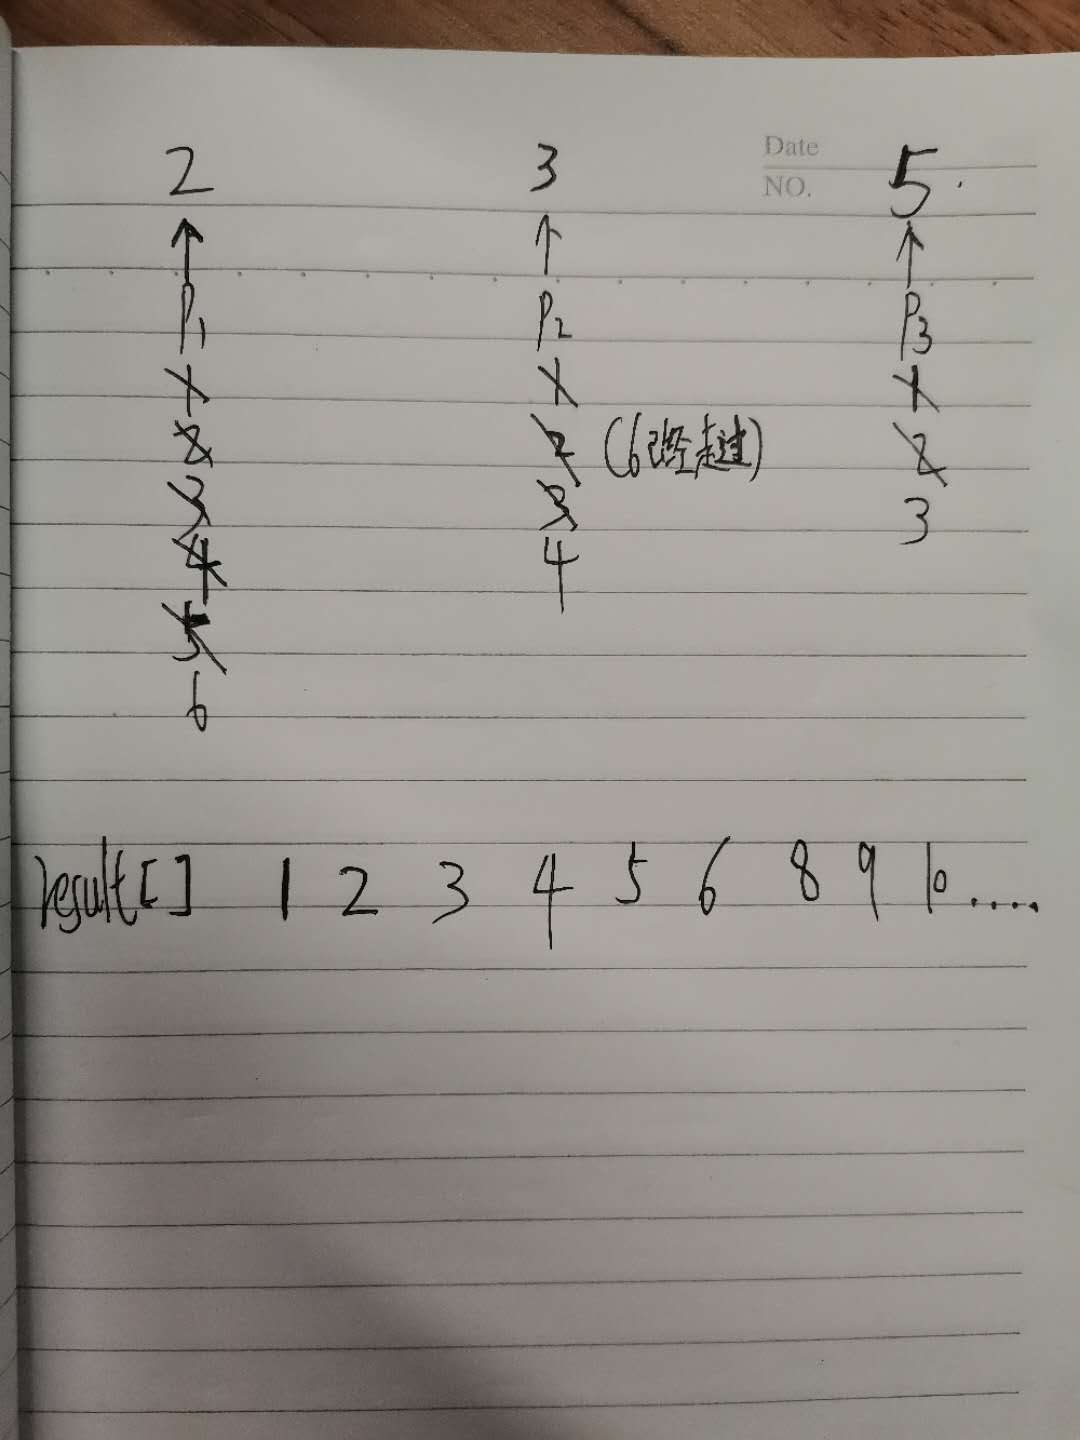 Date
NO.
2 3 5.
↑ ↑ ↑
P1 P2 P3
1 1 1
2 2 (6已经走过) 2
3 3 3
4 4
5
6
result[] 1 2 3 4 5 6 8 9 10.....